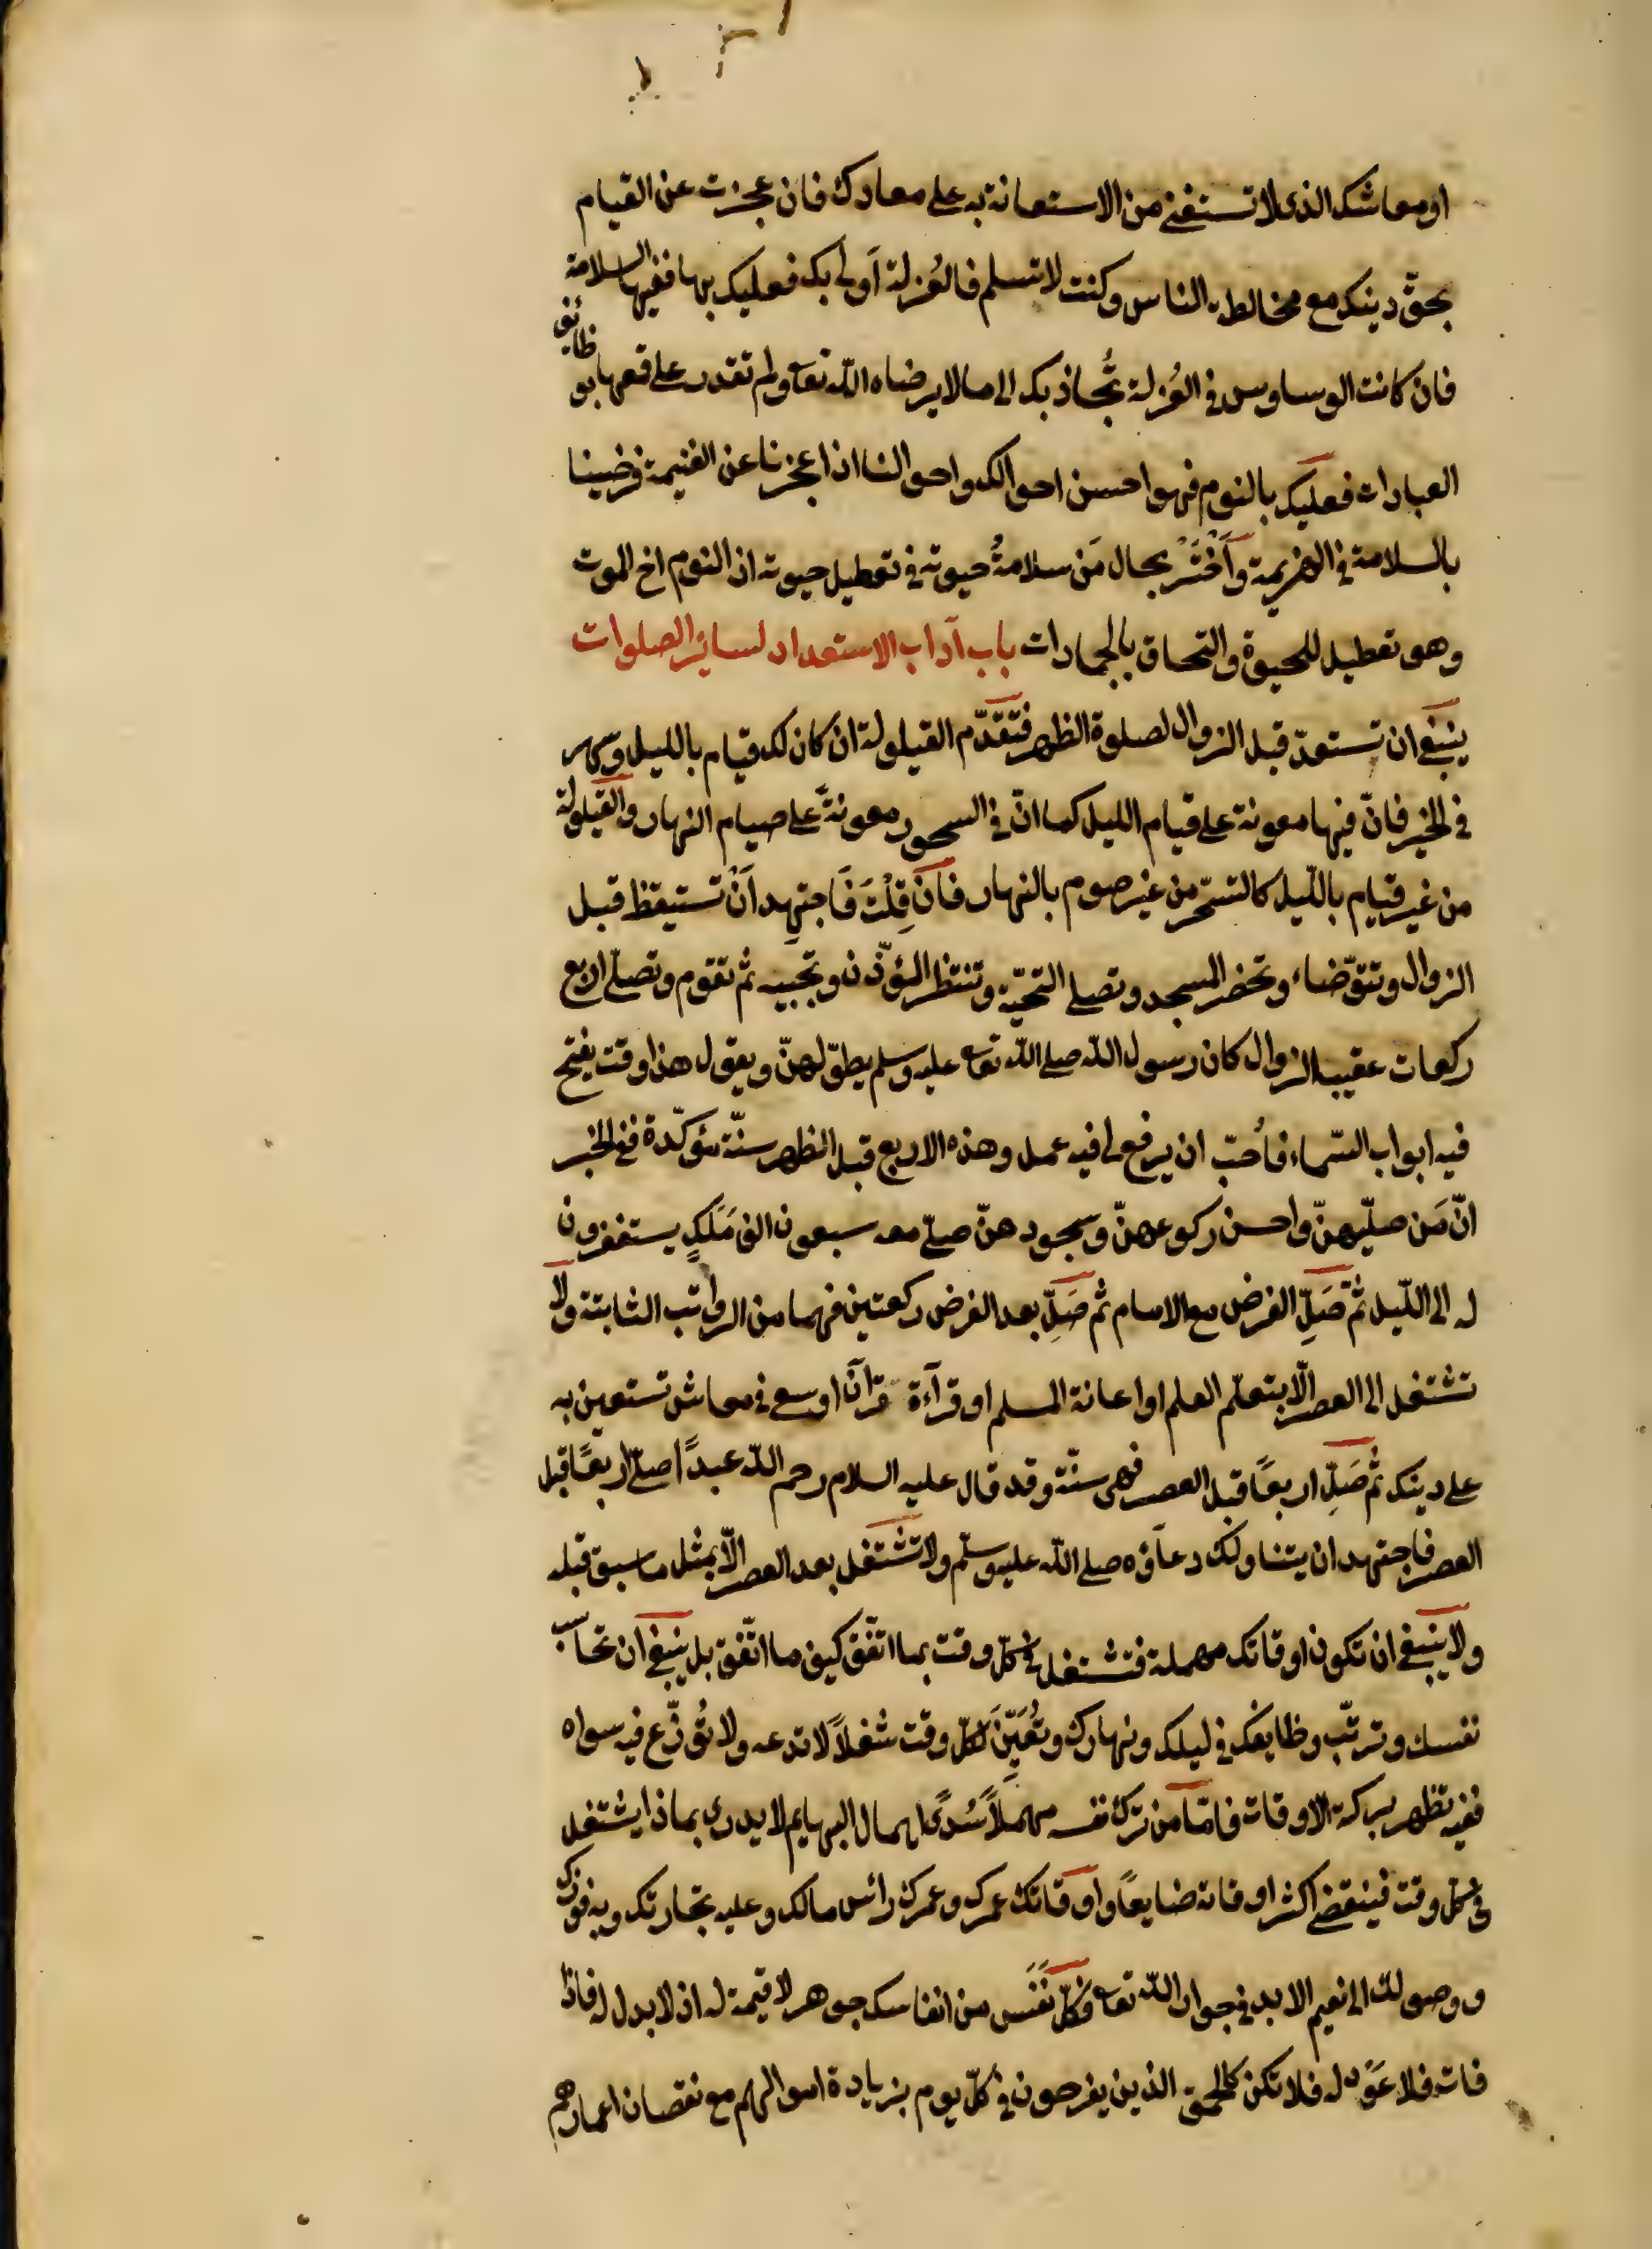 او معاشك الذى لا تستغنى من الاستعانة به على معادك فان عجزت عن القيام
بحقّ دينك مع مخالطة الناس وكنت لا تسلم فالعُزلة اَولى بك فعليك بها ففيها السلامة
فان كانت الوساوس فى العُزلة تُجاذبك الى ما لا يرضاه اللّه تعا ولم تقدر على قمعها بو ظائف
العبادات فعليك بالنوم فهو احسن احوالك واحوالنا اذا عجزنا عن الغنيمة فرضينا
بالسلامة فى الهزيمة وَاَخْسَرْ بحال مَن سلامةُ حيوته فى تعطيل حيوته اذ النوم اخ الموت
وهو تعطيل للحيوة والتحاق بالجمادات باب آداب الاستعداد لسائر الصلوات
ينبغى ان تستعدّ قبل الزوال لصلوة الظهر فتقدّم القيلولة ان كان لك قيام بالليل وسهر
فى الخير فانّ فيها معونة على قيام الليل كما انّ فى السحور معونةً على صيام النهار والقيلولة
من غير قيام بالليل كالتسحّر من غير صوم بالنهار فان قِلْتَ فَاجتهِد اَنْ تستيقظ قبل
الزوال وتتوّضاء وتحضر المسجد وتصلى التحيّة وتنتظر المؤذّن وتجيبه ثم تقوم وتصلّى اربع
ركعات عقيب الزوال كان رسول اللّه صلى اللّه تعا عليه وسلم يطوّلهنّ ويقول هذا وقت يفتح
فيه ابواب السّماء فأحبّ ان يرفع لى فيه عمل وهذه الاربع قبل الظهر سنّة مؤكّدة ففى الخبر
انّ مَن صلّيهنّ واحسن ركوعهنّ وسجودهنّ صلّى معه سبعون الف مَلَكٍ يستغفرون
له الى اللّيل ثمّ صَلِّ الفرض مع الامام ثم صَلِّ بعد الفرض ركعتين فهما من الرواتب الثابتة ولا
تشتغل الى العصر الّا بتعلّم العلم او اعانة المسلم او قرآءة قرآن او سعى فى معاش تستعين به
على دينك ثم صَلِّ اربعًا قبل العصر فهى سنّة وقد قال عليه السلام رحم اللّه عبدًا صلّى اربعًا قبل
العصر فاجتهد ان يتناولك دعآؤه صلى اللّه عليه وسلّم ولا تشتغل بعد العصر الّا بمثل ما سبق قبله
ولا ينبغى ان تكون اوقاتك مهملة فتشتغل فى كلّ وقت بما اتّفق كيف ما اتّفق بل ينبغى ان تحاسب
نفسك وترتّب وظايفك فى ليلك ونهارك وتُعَيِّن لكلّ وقت شغلاً لا تدعه ولا تُوزّع فيه سواه
ففيه تظهر بركة الاوقات فامّا من ترك نفسه مهملاً سُدًى اهمال البهايم لا يدرى بماذا يشتغل
فى كل وقت فينقضى اكثر اوقاته ضايعًا واوقاتك عمرك وعمرك رائس مالك وعليه تجارتك وبه فوزك
ووصولك الى نعيم الابد فى جوار اللّه تعا فكلّ نَفَس من انفاسك جوهر لا قيمة له اذ لا بدل له فاذا
فات فلا عَوْد له فلا تكن كالحمقى الذين يفرحون فى كلّ يوم بزيادة اموالهم مع نقصان اعمارهم